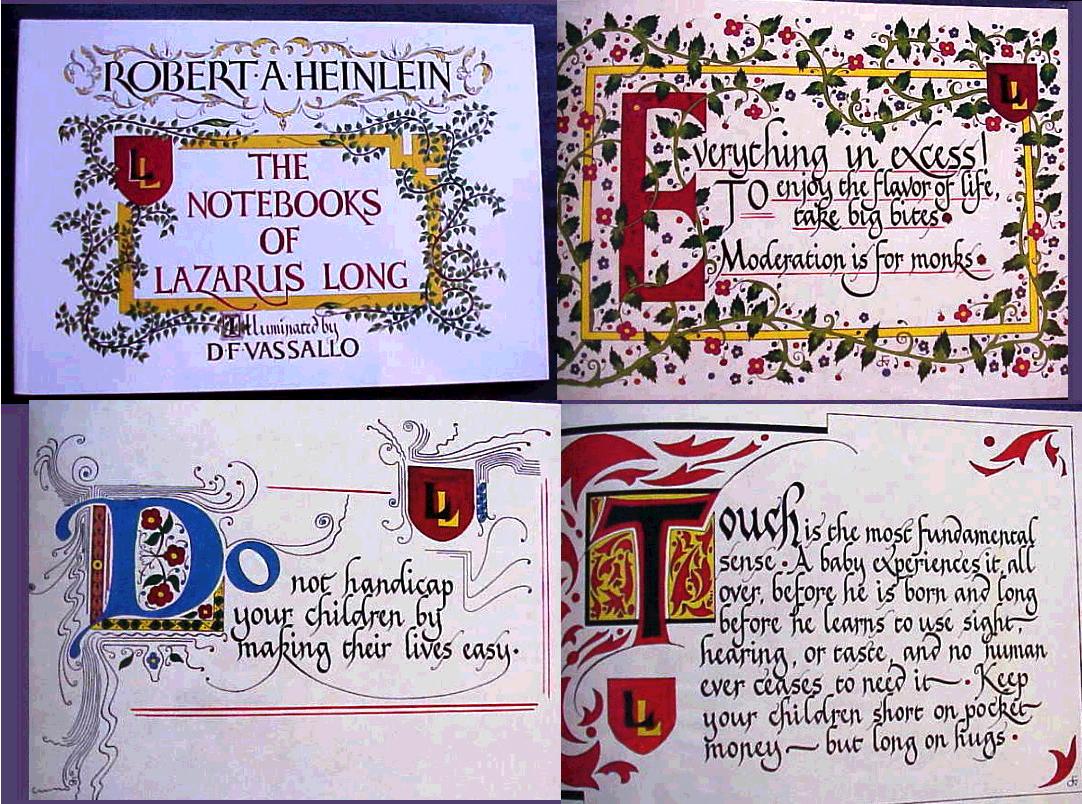 ROBERT·A·HEINLEIN
LL
THE
NOTEBOOKS
OF
LAZARUS LONG
Illuminated by
D·F·VASSALLO
LL
Everything in excess!
TO enjoy the flavor of life,
take big bites.
Moderation is for monks.
LL
Do not handicap
your children by
making their lives easy.
Touch is the most fundamental
sense · A baby experiences it, all
over, before he is born and long
before he learns to use sight,
hearing, or taste, and no human
ever ceases to need it — · Keep
your children short on pocket
money — but long on hugs ·
LL